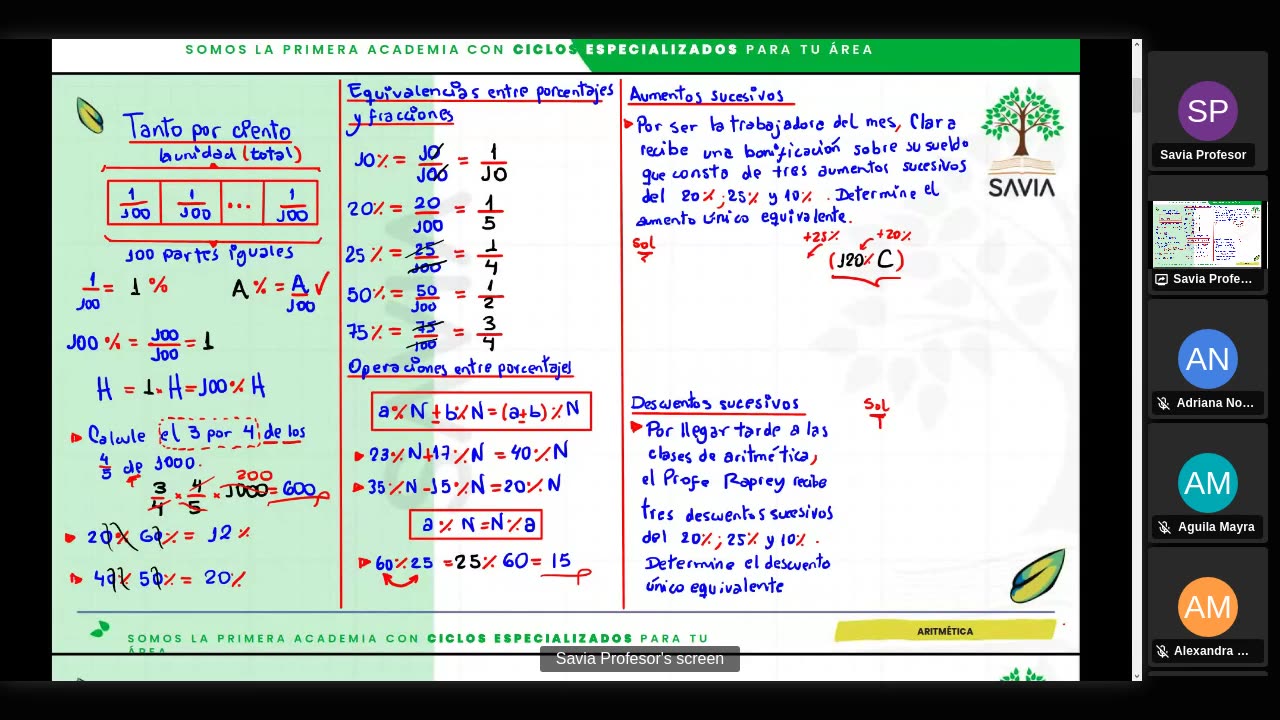 SOMOS LA PRIMERA ACADEMIA CON CICLOS ESPECIALIZADOS PARA TU ÁREA
Tanto por ciento
la unidad (total)
1/100 1/100 ... 1/100
100 partes iguales
1/100 = 1 % A % = A/100 ✓
100 % = 100/100 = 1
H = 1·H = 100% H
Calcule el 3 por 4 de los
4/5 de 1000.
200
3/4 × 4/5 × 1000 = 600
20% 60% = 12%
40% 50% = 20%
Equivalencias entre porcentajes
y fracciones
10% = 10/100 = 1/10
20% = 20/100 = 1/5
25% = 25/100 = 1/4
50% = 50/100 = 1/2
75% = 75/100 = 3/4
Operaciones entre porcentajes
a%N ± b%N = (a±b)%N
23%N + 17%N = 40%N
35%N - 15%N = 20%N
a% N = N% a
60%25 = 25% 60 = 15
Aumentos sucesivos
Por ser la trabajadora del mes, Clara
recibe una bonificación sobre su sueldo
que consta de tres aumentos sucesivos
del 20%; 25% y 10%. Determine el
aumento único equivalente.
Sol
+25% +20%
(120% C)
Descuentos sucesivos
Sol
Por llegar tarde a las
clases de aritmética,
el Profe Raprey recibe
tres descuentos sucesivos
del 20%; 25% y 10%.
Determine el descuento
único equivalente
SAVIA
SOMOS LA PRIMERA ACADEMIA CON CICLOS ESPECIALIZADOS PARA TU
ÁREA
ARITMÉTICA
Savia Profesor's screen
SP
Savia Profesor
Savia Profe...
AN
Adriana No...
AM
Aguila Mayra
AM
Alexandra ...